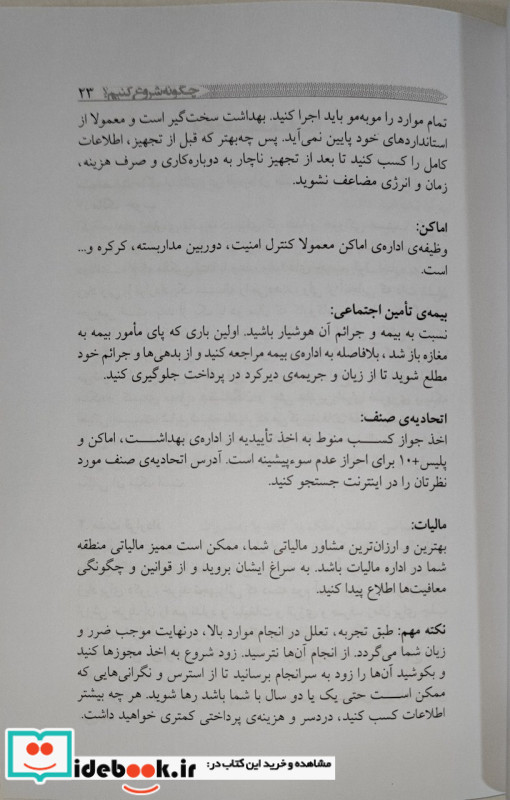 چگونه شروع کنیم؟! ۲۳
تمام موارد را موبه‌مو باید اجرا کنید. بهداشت سخت‌گیر است و معمولا از
استانداردهای خود پایین نمی‌آید. پس چه‌بهتر که قبل از تجهیز، اطلاعات
کامل را کسب کنید تا بعد از تجهیز ناچار به دوباره‌کاری و صرف هزینه،
زمان و انرژی مضاعف نشوید.
اماکن:
وظیفه‌ی اداره‌ی اماکن معمولا کنترل امنیت، دوربین مداربسته، کرکره و...
است.
بیمه‌ی تأمین اجتماعی:
نسبت به بیمه و جرائم آن هوشیار باشید. اولین باری که پای مأمور بیمه به
مغازه باز شد، بلافاصله به اداره‌ی بیمه مراجعه کنید و از بدهی‌ها و جرائم خود
مطلع شوید تا از زیان و جریمه‌ی دیرکرد در پرداخت جلوگیری کنید.
اتحادیه‌ی صنف:
اخذ جواز کسب منوط به اخذ تأییدیه از اداره‌ی بهداشت، اماکن و
پلیس+۱۰ برای احراز عدم سوءپیشینه است. آدرس اتحادیه‌ی صنف مورد
نظرتان را در اینترنت جستجو کنید.
مالیات:
بهترین و ارزان‌ترین مشاور مالیاتی شما، ممکن است ممیز مالیاتی منطقه
شما در اداره مالیات باشد. به سراغ ایشان بروید و از قوانین و چگونگی
معافیت‌ها اطلاع پیدا کنید.
نکته مهم: طبق تجربه، تعلل در انجام موارد بالا، درنهایت موجب ضرر و
زیان شما می‌گردد. از انجام آن‌ها نترسید. زود شروع به اخذ مجوزها کنید
و بکوشید آن‌ها را زود به سرانجام برسانید تا از استرس و نگرانی‌هایی که
ممکن است حتی یک یا دو سال با شما باشد رها شوید. هر چه بیشتر
اطلاعات کسب کنید، دردسر و هزینه‌ی پرداختی کمتری خواهید داشت.
مشاهده و خرید این کتاب در:
idebook.ir